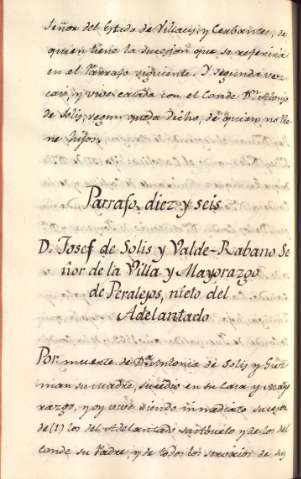 Señor del Estado de Villacis, y Cerbantes, de
quien tiene la succesion que se referirá
en el Parrafo siguiente. Y segunda vez
casó, y vive casada con el Conde Dn. Alonso
de Solis, segun queda dicho, de quien no tie
ne hijos.
Parrafo diez y seis
D. Josef de Solis y Valde-Rabano Se
ñor de la Villa y Mayorazgo
de Peralejos, nieto del
Adelantado
Por muerte de Dª Antonia de Solis y Guz
man su madre, sucedio en su Casa y Mayo
razgo, y oy vive siendo inmediato sucesor
de (1) los del Adelantado su Abuelo, y de los del
Conde su Padre, y de todos los servicios de su